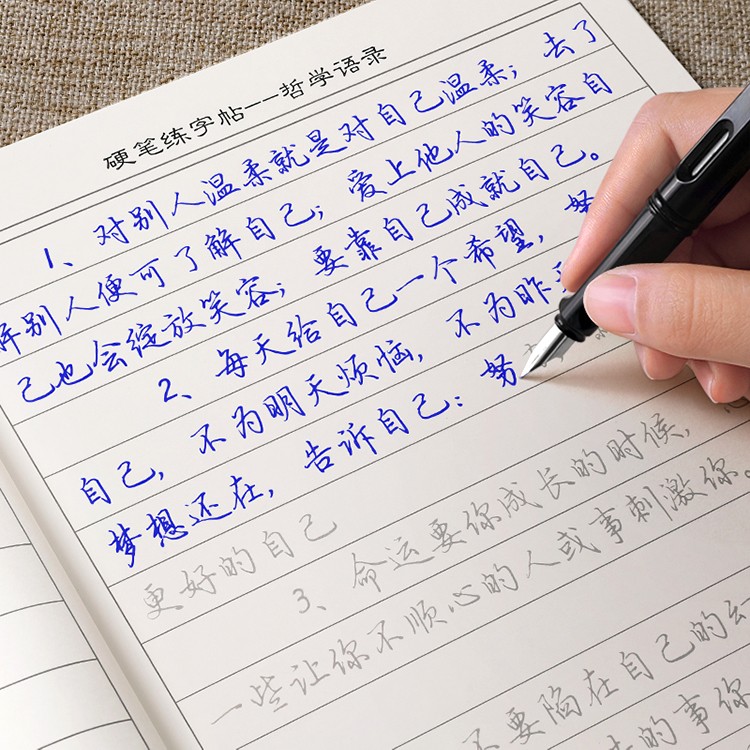 硬笔练字帖--哲学语录
1、对别人温柔就是对自己温柔；去了
解别人便可了解自己；爱上他人的笑容自
己也会绽放笑容；要靠自己成就自己。
2、每天给自己一个希望，努
自己，不为明天烦恼，不为昨
梦想还在，告诉自己：努
更好的自己
3、命运要你成长的时候，
一些让你不顺心的人或事刺激你。
不要陷在自己的
的事你